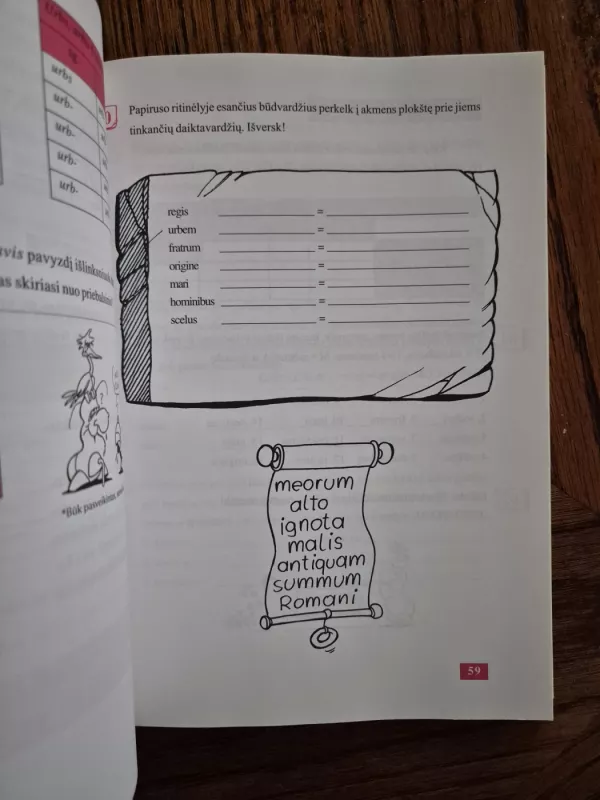 sg.
urbs
urb-
urb-
urb-
urb-
avis pavyzdį
as skiriasi nuo
*Būk pasveikintas,
Papiruso ritinėlyje esančius būdvardžius perkelk į akmens plokštę prie jiems
tinkančių daiktavardžių. Išversk!
regis ____________ = ____________
urbem ____________ = ____________
fratrum ____________ = ____________
origine ____________ = ____________
mari ____________ = ____________
hominibus ____________ = ____________
scelus ____________ = ____________
meorum
alto
ignota
malis
antiquam
summum
Romani
59